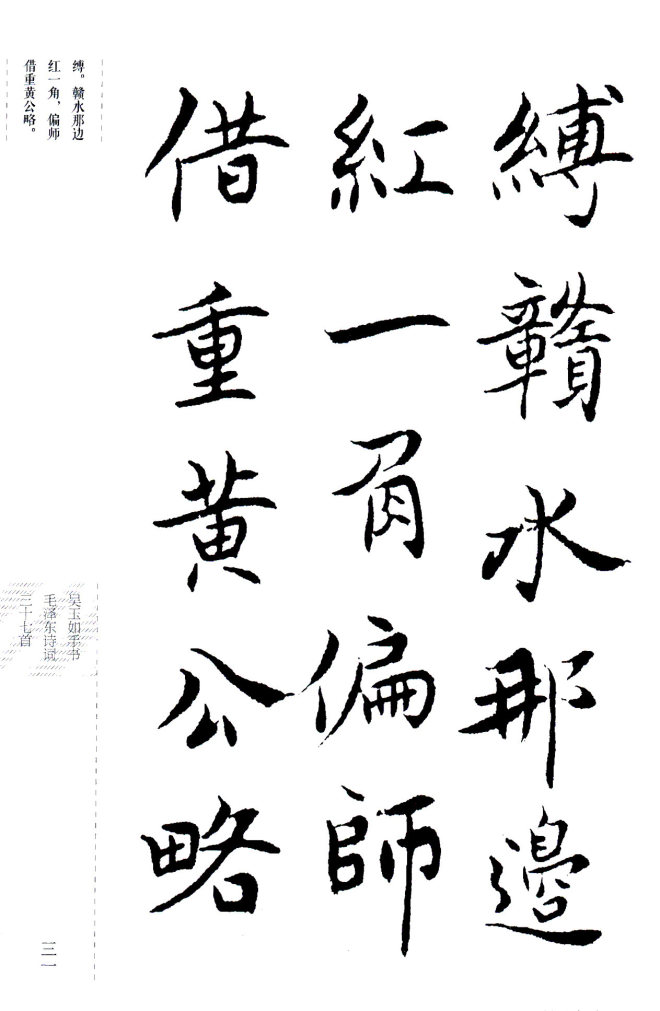 縛贛水那邊
紅一角偏師
借重黄公略
缚。赣水那边
红一角，偏师
借重黄公略。
吴玉如手书
毛泽东诗词
三十七首
三一